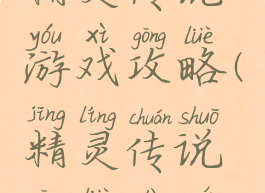 yóu xì gōng lüè
游戏攻略(
jīng líng chuán shuō
精灵传说